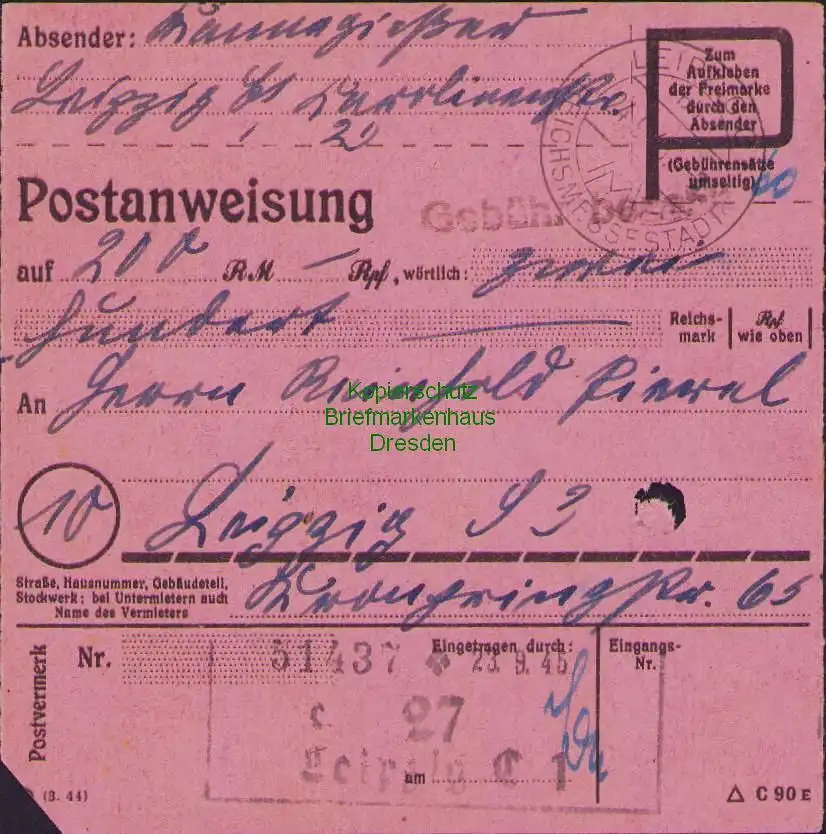 Absender: Kannegießer
Leipzig
2
Zum
Aufkleben
der Freimarke
durch den
Absender
(Gebührensätze
umseitig)
60
LEIPZIG
REICHSMESSESTADT
Postanweisung
Gebühr bezahlt
auf 200 RM — Rpf, wörtlich: zwei
hundert
Reichs-
mark
Rpf
wie oben
An Herrn Reinhold
Kopierschutz
Briefmarkenhaus
Dresden
10 Leipzig S 3
Straße, Hausnummer, Gebäudeteil,
Stockwerk; bei Untermietern auch
Name des Vermieters
Kronprinzstr. 65
Postvermerk
Nr. 51437
Eingetragen durch:
23. 9. 45
Eingangs-
Nr.
27
Leipzig C 1
am
(3. 44)
C 90 E